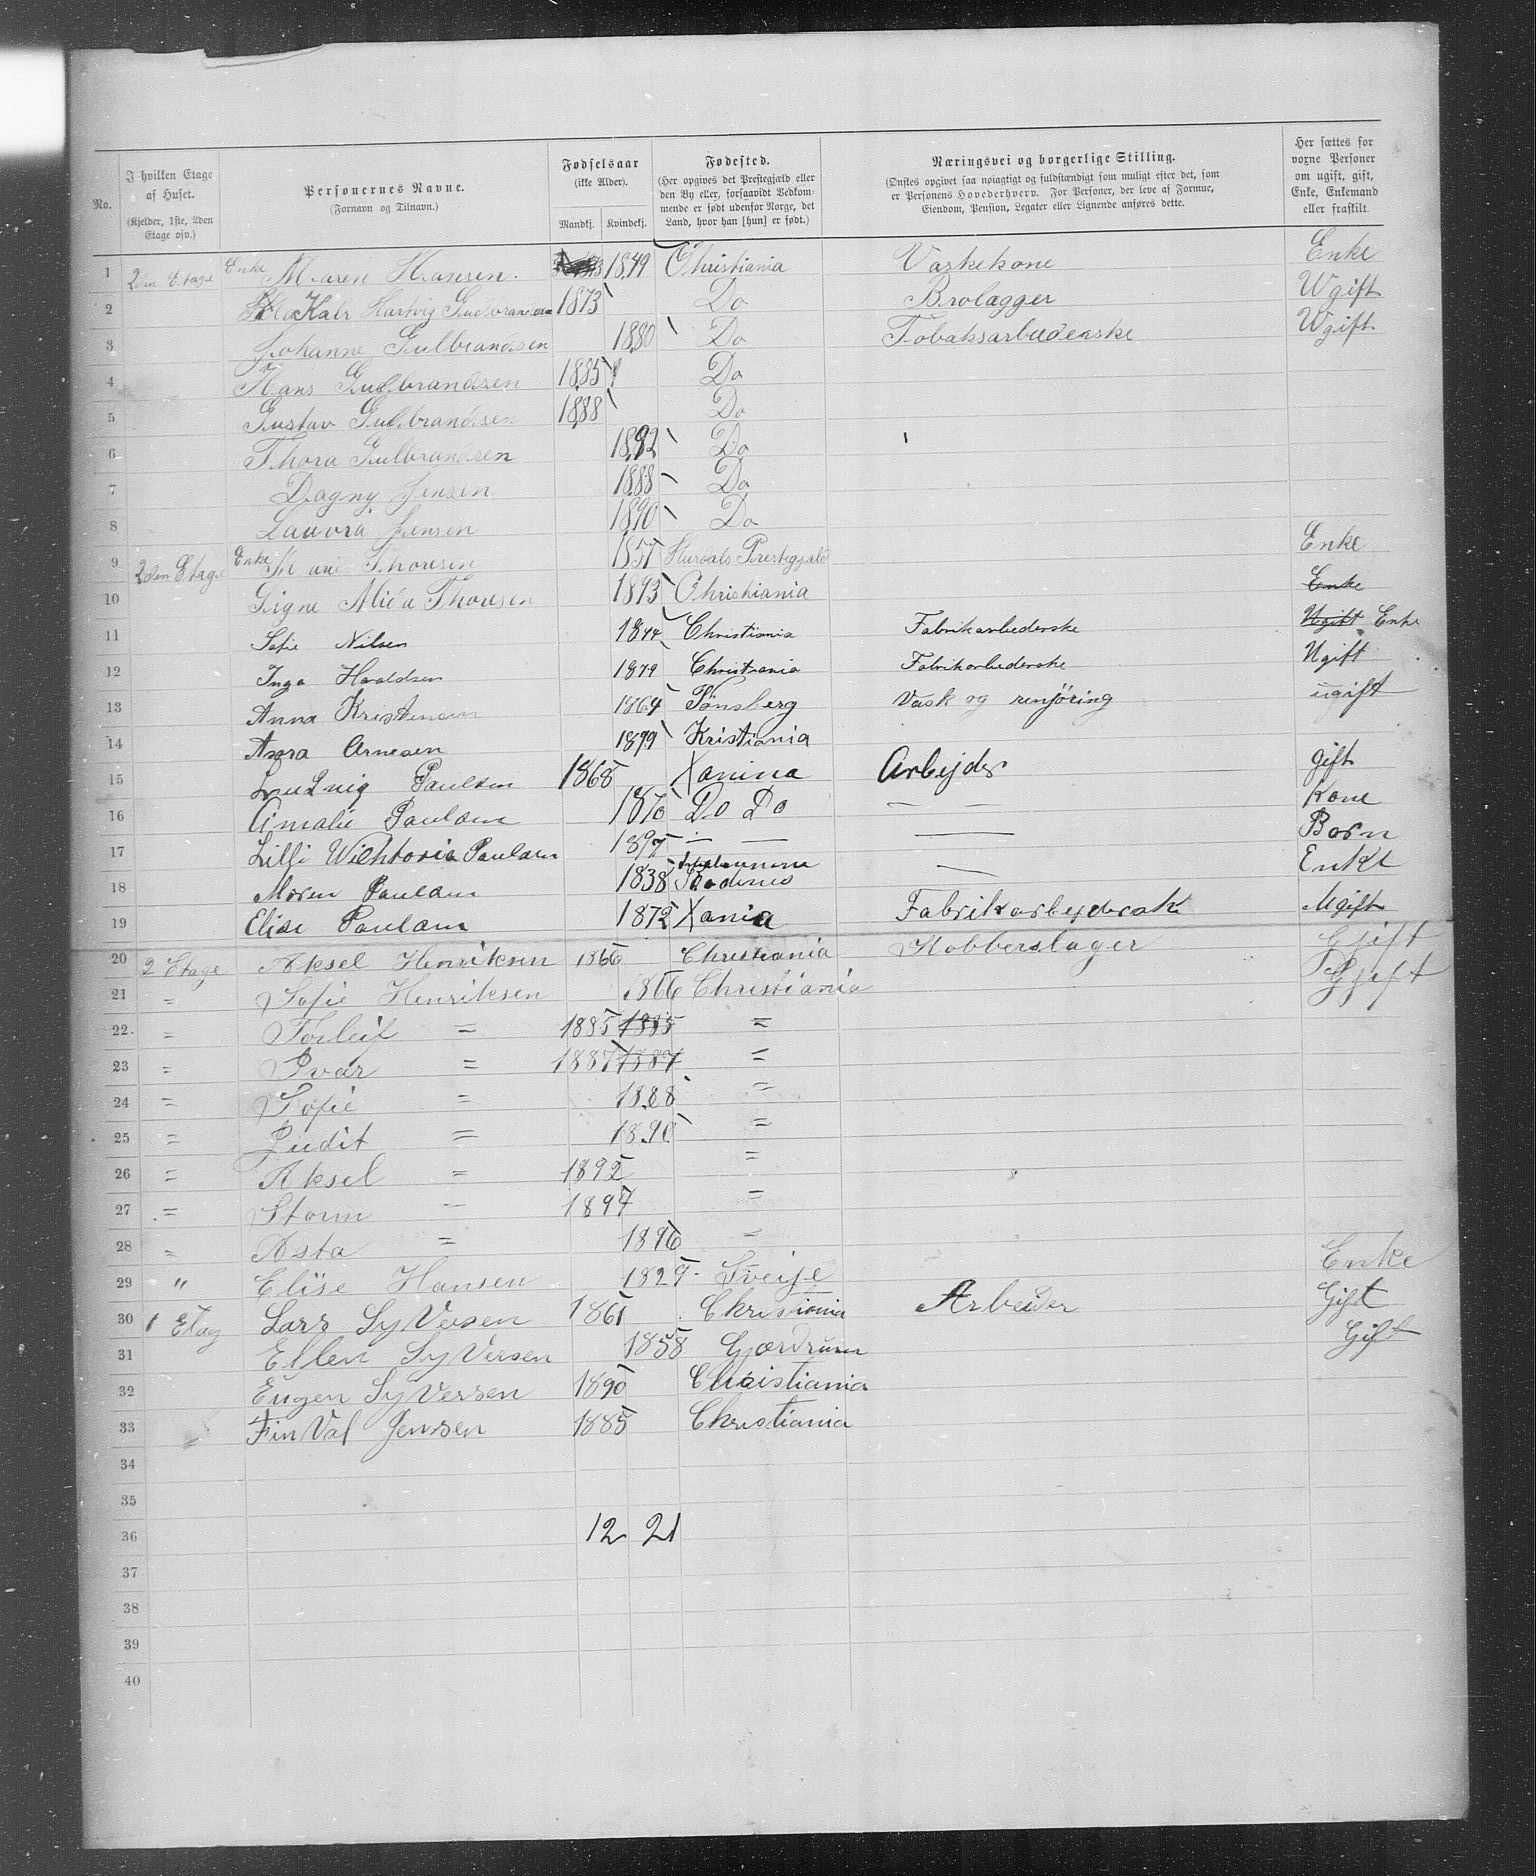 No.	I hvilken Etage af Huset. (Kjelder, 1ste, 2den Etage osv.)	Personernes Navne. (Fornavn og Tilnavn.)	Fødselsaar (ikke Alder). Mandkj. Kvindekj.	Fødested. (Her opgives det Prestegjæld eller den By eller, forsaavidt Vedkommende er født udenfor Norge, det Land, hvor han [hun] er født.)	Næringsvei og borgerlige Stilling. (Ønskes opgivet saa nøiagtigt og fuldstændigt som muligt efter det, som er Personens Hovederhverv. For Personer, der leve af Formue, Eiendom, Pension, Legater eller Lignende anføres dette.	Her sættes for voxne Personer om ugift, gift, Enke, Enkemand eller fraskilt.
1 2den Etage Enke Maren Hansen. 1849 Christiania Vaskekone Enke
2 Karl Hartvig Gulbrandsen 1873 Do Brolægger Ugift
3 Johanne Gulbrandsen 1880 Do Tobaksarbeiderske Ugift
4 Hans Gulbrandsen 1885 Do
5 Gustav Gulbrandsen 1888 Do
6 Thora Gulbrandsen 1892 Do
7 Dagny Jensen 1888 Do
8 Laavra Jensen 1890 Do
9 2den Etage Enke Thoresen 1857 Hurdals Prestegjæld Enke
10 Signe Thoresen 1893 Christiania Enke
11 Sofie Nilsen 1844 Christiania Fabrikarbederske Ugift Enke
12 Inga Haraldsen 1879 Christiania Fabrikarbederske Ugift
13 Anna Kristensen 1864 Tönsberg Vask og renjöring ugift
14 Arnesen 1899 Kristiania
15 Ludvig Paulsen 1868 Xanina Arbejder gift
16 Amalie Paulsen 1870 Do Do — — Kone
17 Lilli Wichtoria Paulsen 1897 — — — Born
18 Maren Paulsen 1838 — Enke
19 Elise Paulsen 1872 Xania Fabrikarbejdersk Ugift
20 2 Etage Aksel Henriksen 1866 Christiania Kobberslager Gjift
21 " Sofie Henriksen 1866 Christiania Gjift
22 " Torleif = 1885 1885 =
23 " Ivar = 1887 1887 =
24 " Sofie = 1888 =
25 " Judit = 1890 =
26 " Aksel = 1892 =
27 " Storm — 1894 =
28 " Asta = 1896 =
29 " Elise Hansen 1829 Sveije Enke
30 1 Etag Lars Syversen 1861 Christiania Arbeider Gift
31 Ellen Syversen 1858 Gjærdrum Gift
32 Eugen Syversen 1890 Christiania
33 " Fin Val Jensen 1885 Christiania
34
35
36 12 21
37
38
39
40